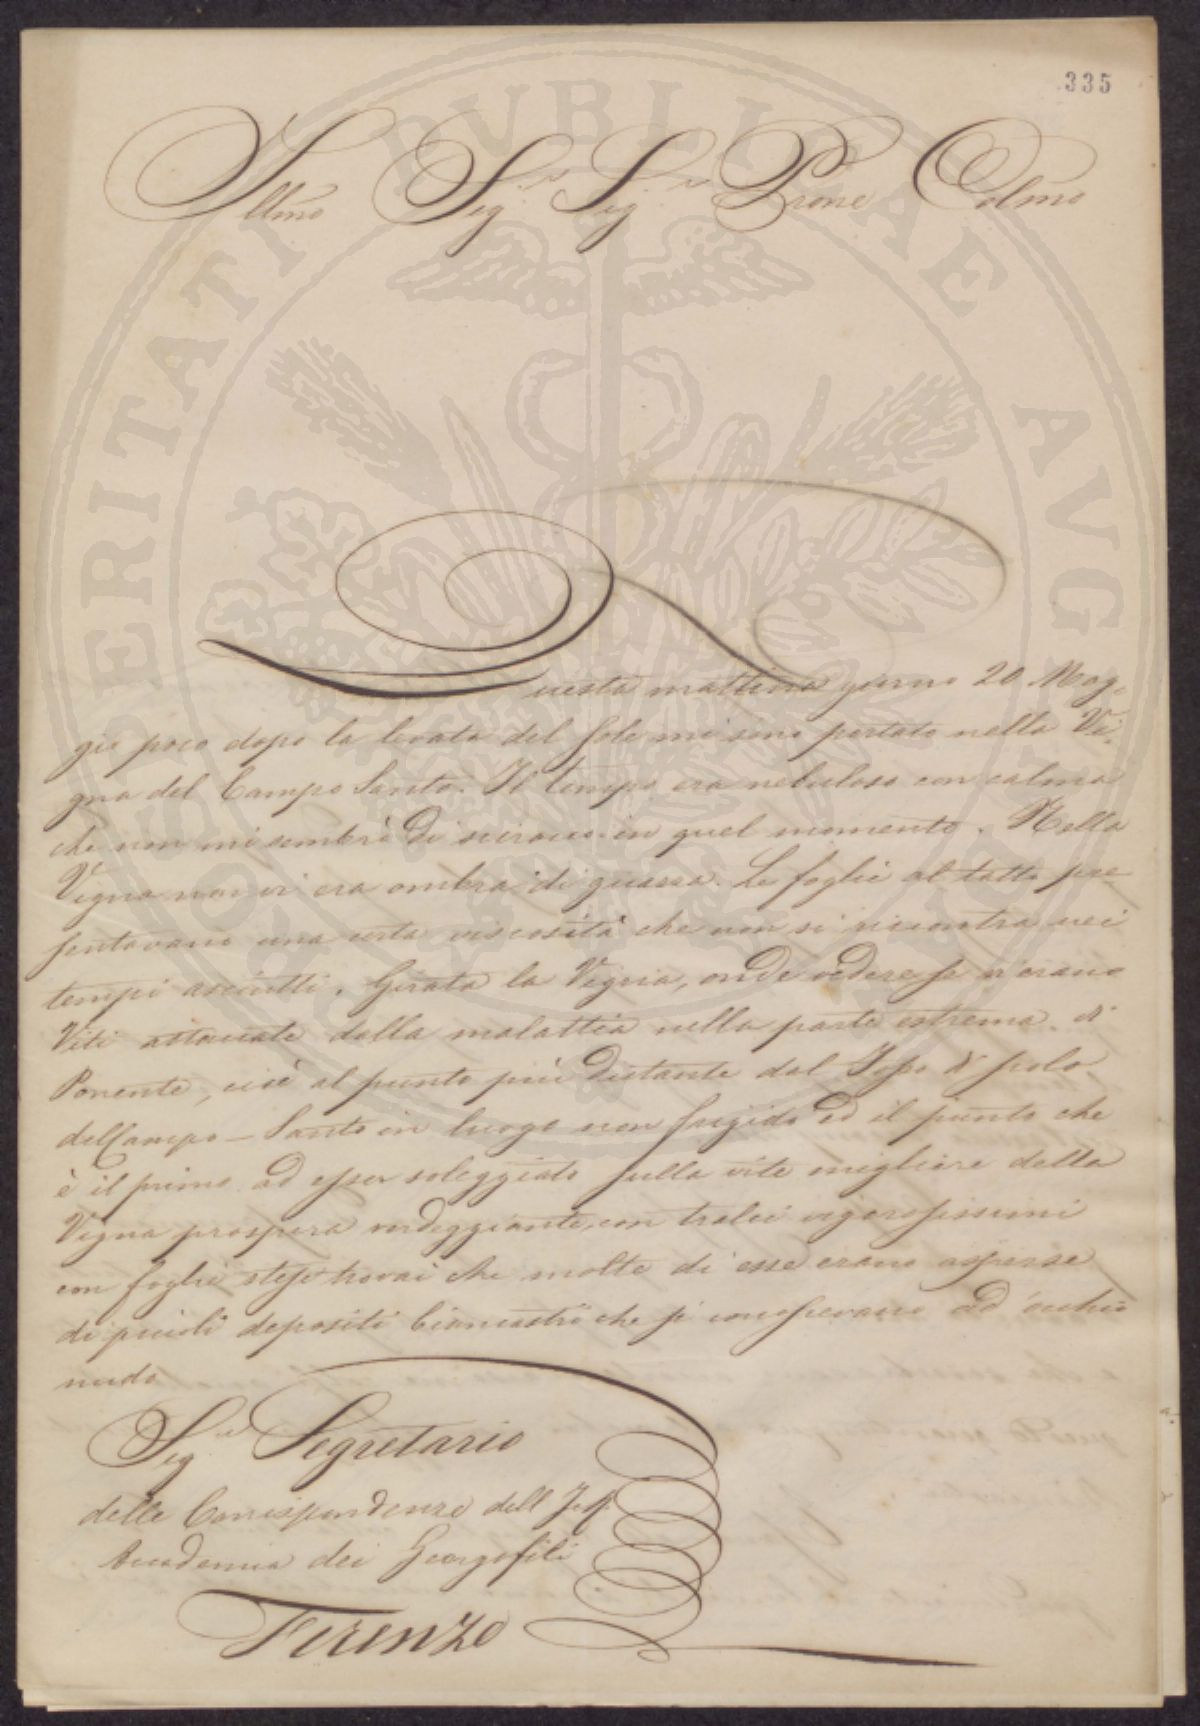 335
Illmo Sig.r Sig.r Prone Colmo
Questa mattina giorno 20 Mag-
gio poco dopo la levata del sole mi sono portato nella Vi-
gna del Campo Santo. Il tempo era nebuloso con calma
che non mi sembrò di scirocco in quel momento. Nella
Vigna non vi era ombra di guazza. Le foglie al tatto pre-
sentavano una certa viscosità che non si riscontra nei
tempi asciutti. Girata la Vigna, onde vedere se vi erano
Viti attaccate dalla malattia nella parte estrema di
Ponente, cioè al punto più distante dal
del Campo-Santo in luogo non frigido ed il punto che
è il primo ad esser soleggiato sulla vite migliore della
Vigna prospera verdeggiante, con tralci vigorosissimi
con foglie stese trovai che molte di esse erano asperse
di piccoli depositi biancastri che si conoscevano ad occhio
nudo
Sig.r Segretario
delle Corrispondenze dell I. e R.
Accademia dei Georgofili
Firenze
PROSPERITATI PVBLICAE AVGENDAE